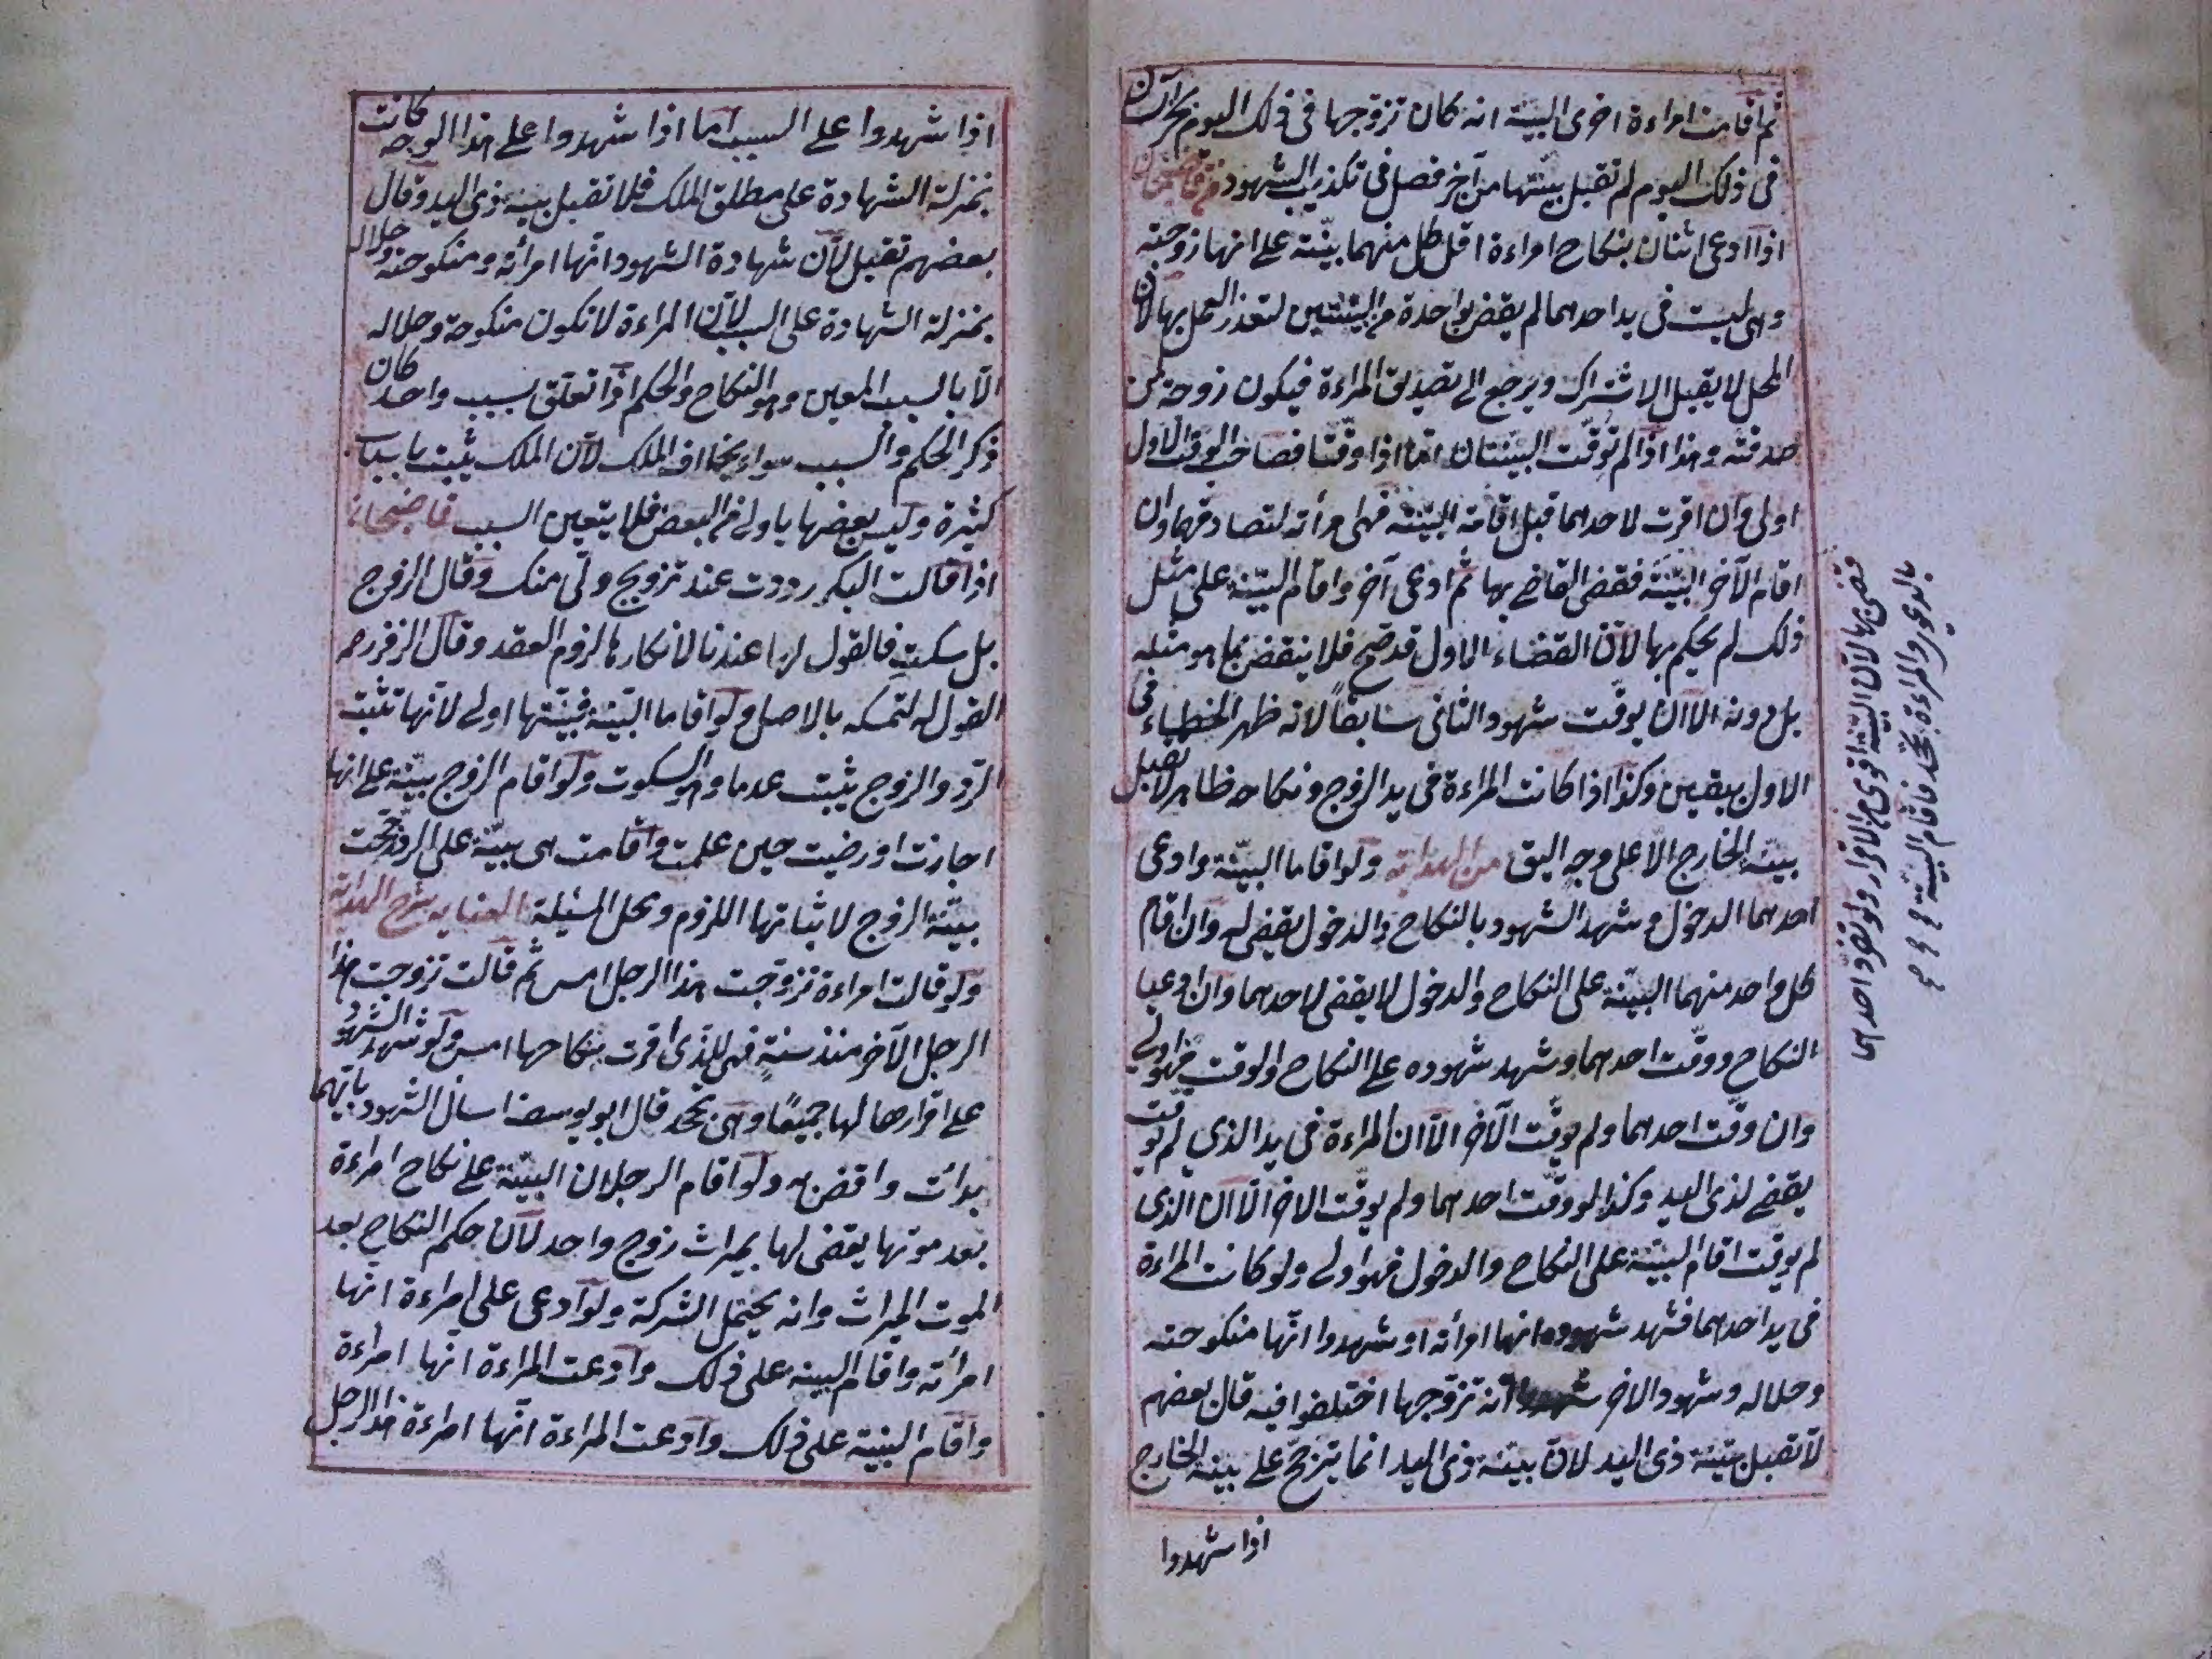 ثم اقامت امراءة اخرى البينة انه كان تزوجها فى ذلك اليوم بخراسان
فى ذلك اليوم لم تقبل بينتها من آخر فصل فى تكذيب الشهود من قاضيخان
اذا ادعى اثنان بنكاح امراءة اقل كل منهما بينة على انها زوجته
وهى ليست فى يد احدهما لم يقض بواحدة من البينتين لتعذر العمل بها لان
المحل لا يقبل الاشتراك ويرجع الى تصديق المراءة فيكون زوجة لمن
صدقته وهذا اذا لم توقت البينتان اما اذا وقتا فصاحب الوقت الاول
اولى وان اقرت لاحدهما قبل اقامة البينة فهى امرأته لتصادقهما وان
اقام الآخر البينة فقضى القاضى بها ثم ادعى آخر واقام البينة على مثل
ذلك لم يحكم بها لان القضاء الاول قد صح فلا ينقض بما هو مثله
بل دونه الا ان يوقت شهود الثانى سابقاً لانه ظهر الخطاء فى
الاول بيقين وكذا اذا كانت المراءة فى يد الزوج ونكاحه ظاهر لا تقبل
بينة الخارج الا على وجه السبق من الهداية ولو اقاما البينة وادعى
احدهما الدخول وشهد الشهود بالنكاح والدخول يقضى له وان اقام
كل واحد منهما البينة على النكاح والدخول لا يقضى لاحدهما وان ادعيا
النكاح ووقت احدهما وشهد شهوده على النكاح والوقت فهو اولى
وان وقت احدهما ولم يوقت الآخر الا ان المراءة فى يد الذي لم يوقت
يقضى لذى اليد وكذا لو وقت احدهما ولم يوقت الاخر الا ان الذى
لم يوقت اقام البينة على النكاح والدخول فهو اولى ولو كانت المراءة
فى يد احدهما فشهد شهوده انها امرأته او شهدوا انها منكوحته
وحلاله وشهود الاخر شهدوا انه تزوجها اختلفوا فيه قال بعضهم
لا تقبل بينة ذى اليد لان بينة ذى اليد انما يترجح على بينة الخارج
اذا شهدوا
اذا شهدوا على السبب اما اذا شهدوا على هذا الوجه كانت
بمنزلة الشهادة على مطلق الملك فلا تقبل بينة ذى اليد وقال
بعضهم تقبل لان شهادة الشهود انها امرأته ومنكوحته وحلاله
بمنزلة الشهادة على السبب لان المراءة لا تكون منكوحة وحلاله
الا بالسبب المعين وهو النكاح والحكم اذا تعلق بسبب واحد كان
ذكر الحكم والسبب سواء بخلاف الملك لان الملك يثبت باسباب
كثيرة وليس بعضها باولى من البعض فلا يتعين السبب قاضيخان
اذا قالت البكر رددت عند تزويج ولى منك وقال الزوج
بل سكت فالقول لها عندنا لانكارها لزوم العقد وقال الزفر رحمه
القول له لتمسكه بالاصل ولو اقاما البينة فبينتها اولى لانها تثبت
الرد والزوج يثبت عدما وهو السكوت ولو اقام الزوج بينة على انها
اجازت او رضيت حين علمت واقامت هى بينة على الرد رجحت
بينة الزوج لاثباتها اللزوم ومحل المسئلة العنايه شرح الهداية
ولو قالت امراءة تزوجت هذا الرجل امس ثم قالت تزوجت هذا
الرجل الآخر منذ سنة فهى للذى اقرت بنكاحها امس ولو شهد الشهود
على اقرارها لهما جميعًا وهى تجحد قال ابو يوسف اسأل الشهود بايهما
بدأت واقض به ولو اقام الرجلان البينة على نكاح امراءة
بعد موتها يقضى لهما بميراث زوج واحد لان حكم النكاح بعد
الموت الميراث وانه يحتمل الشركة ولو ادعى على امراءة انها
امرأته واقام البينه على ذلك وادعت المراءة انها امراءة
واقام البينة على ذلك وادعت المراءة انها امراءة هذا الرجل